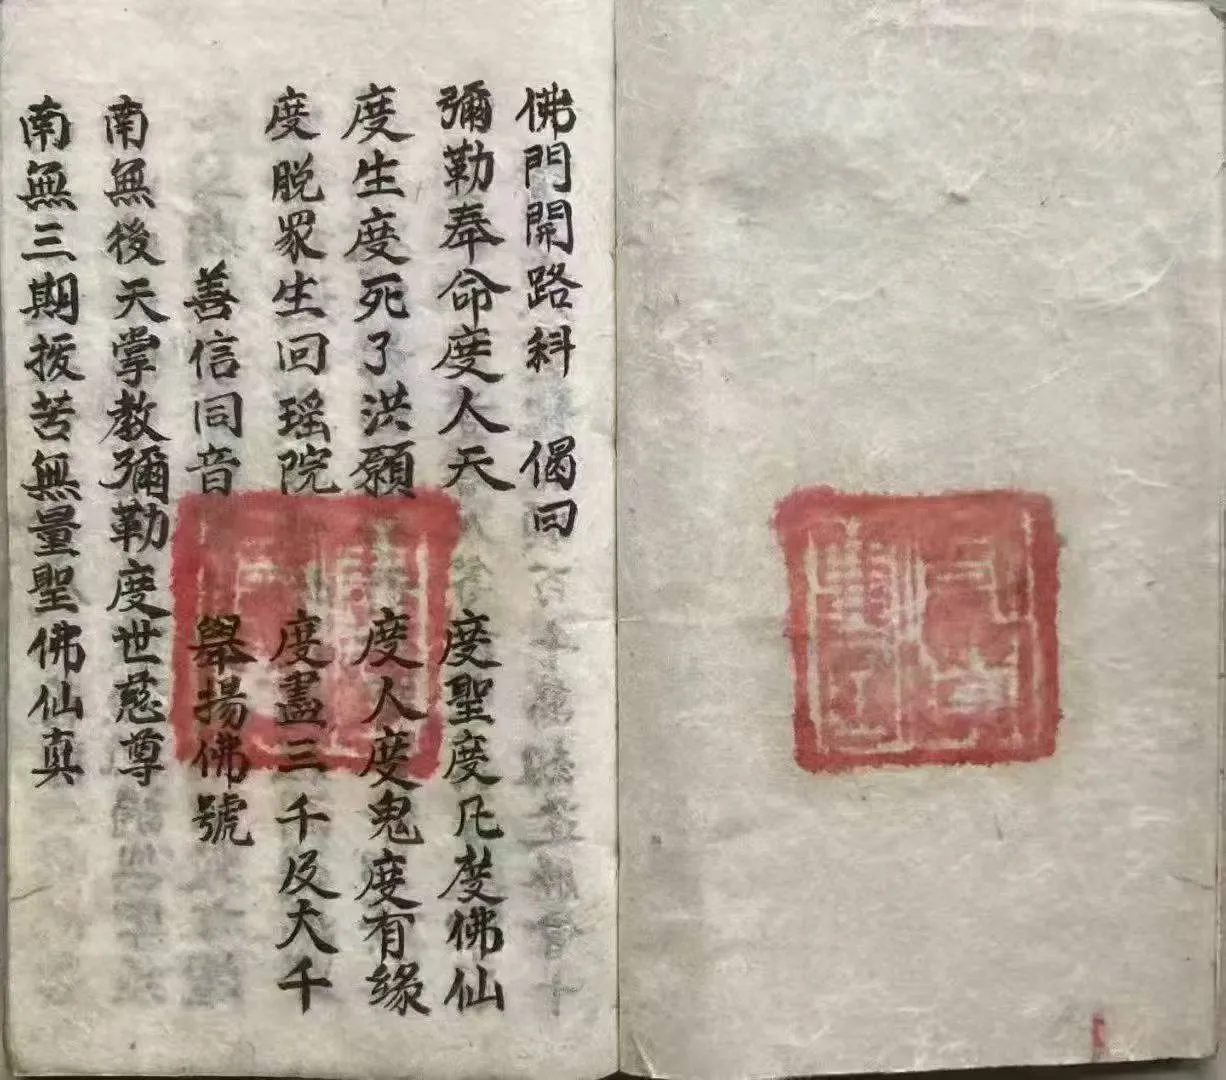 佛門開路科 偈曰
彌勒奉命度人天 度聖度凡度佛仙
度生度死了洪願 度人度鬼度有緣
度脱眾生回瑶院 度盡三千及大千
善信同音 舉揚佛號
南無後天掌教彌勒度世慈尊
南無三期拔苦無量聖佛仙真